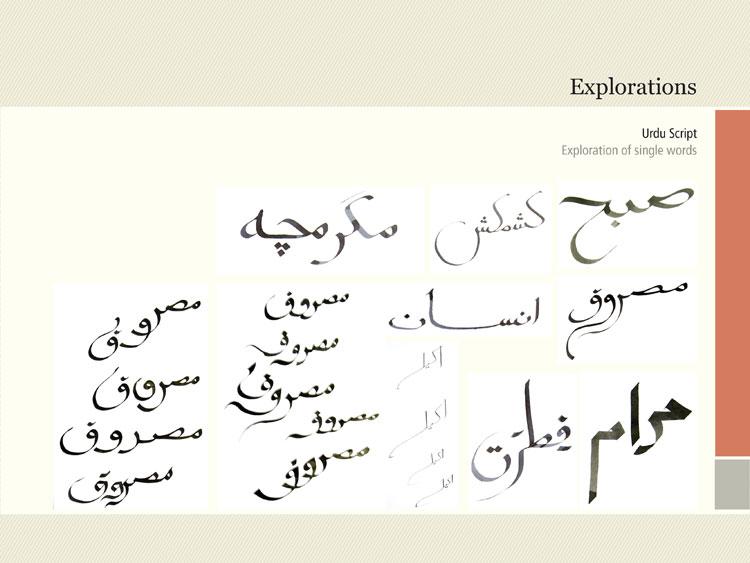 Explorations
Urdu Script
Exploration of single words
صبح
کشمکش
مگرمچہ
مصروف
انسان
مصروف
مصروف
مصروف
مصروف
مصروف
مصروف
مصروف
مصروف
مصروف
اکمل
اکمل
اکمل
اکمل
فطرت